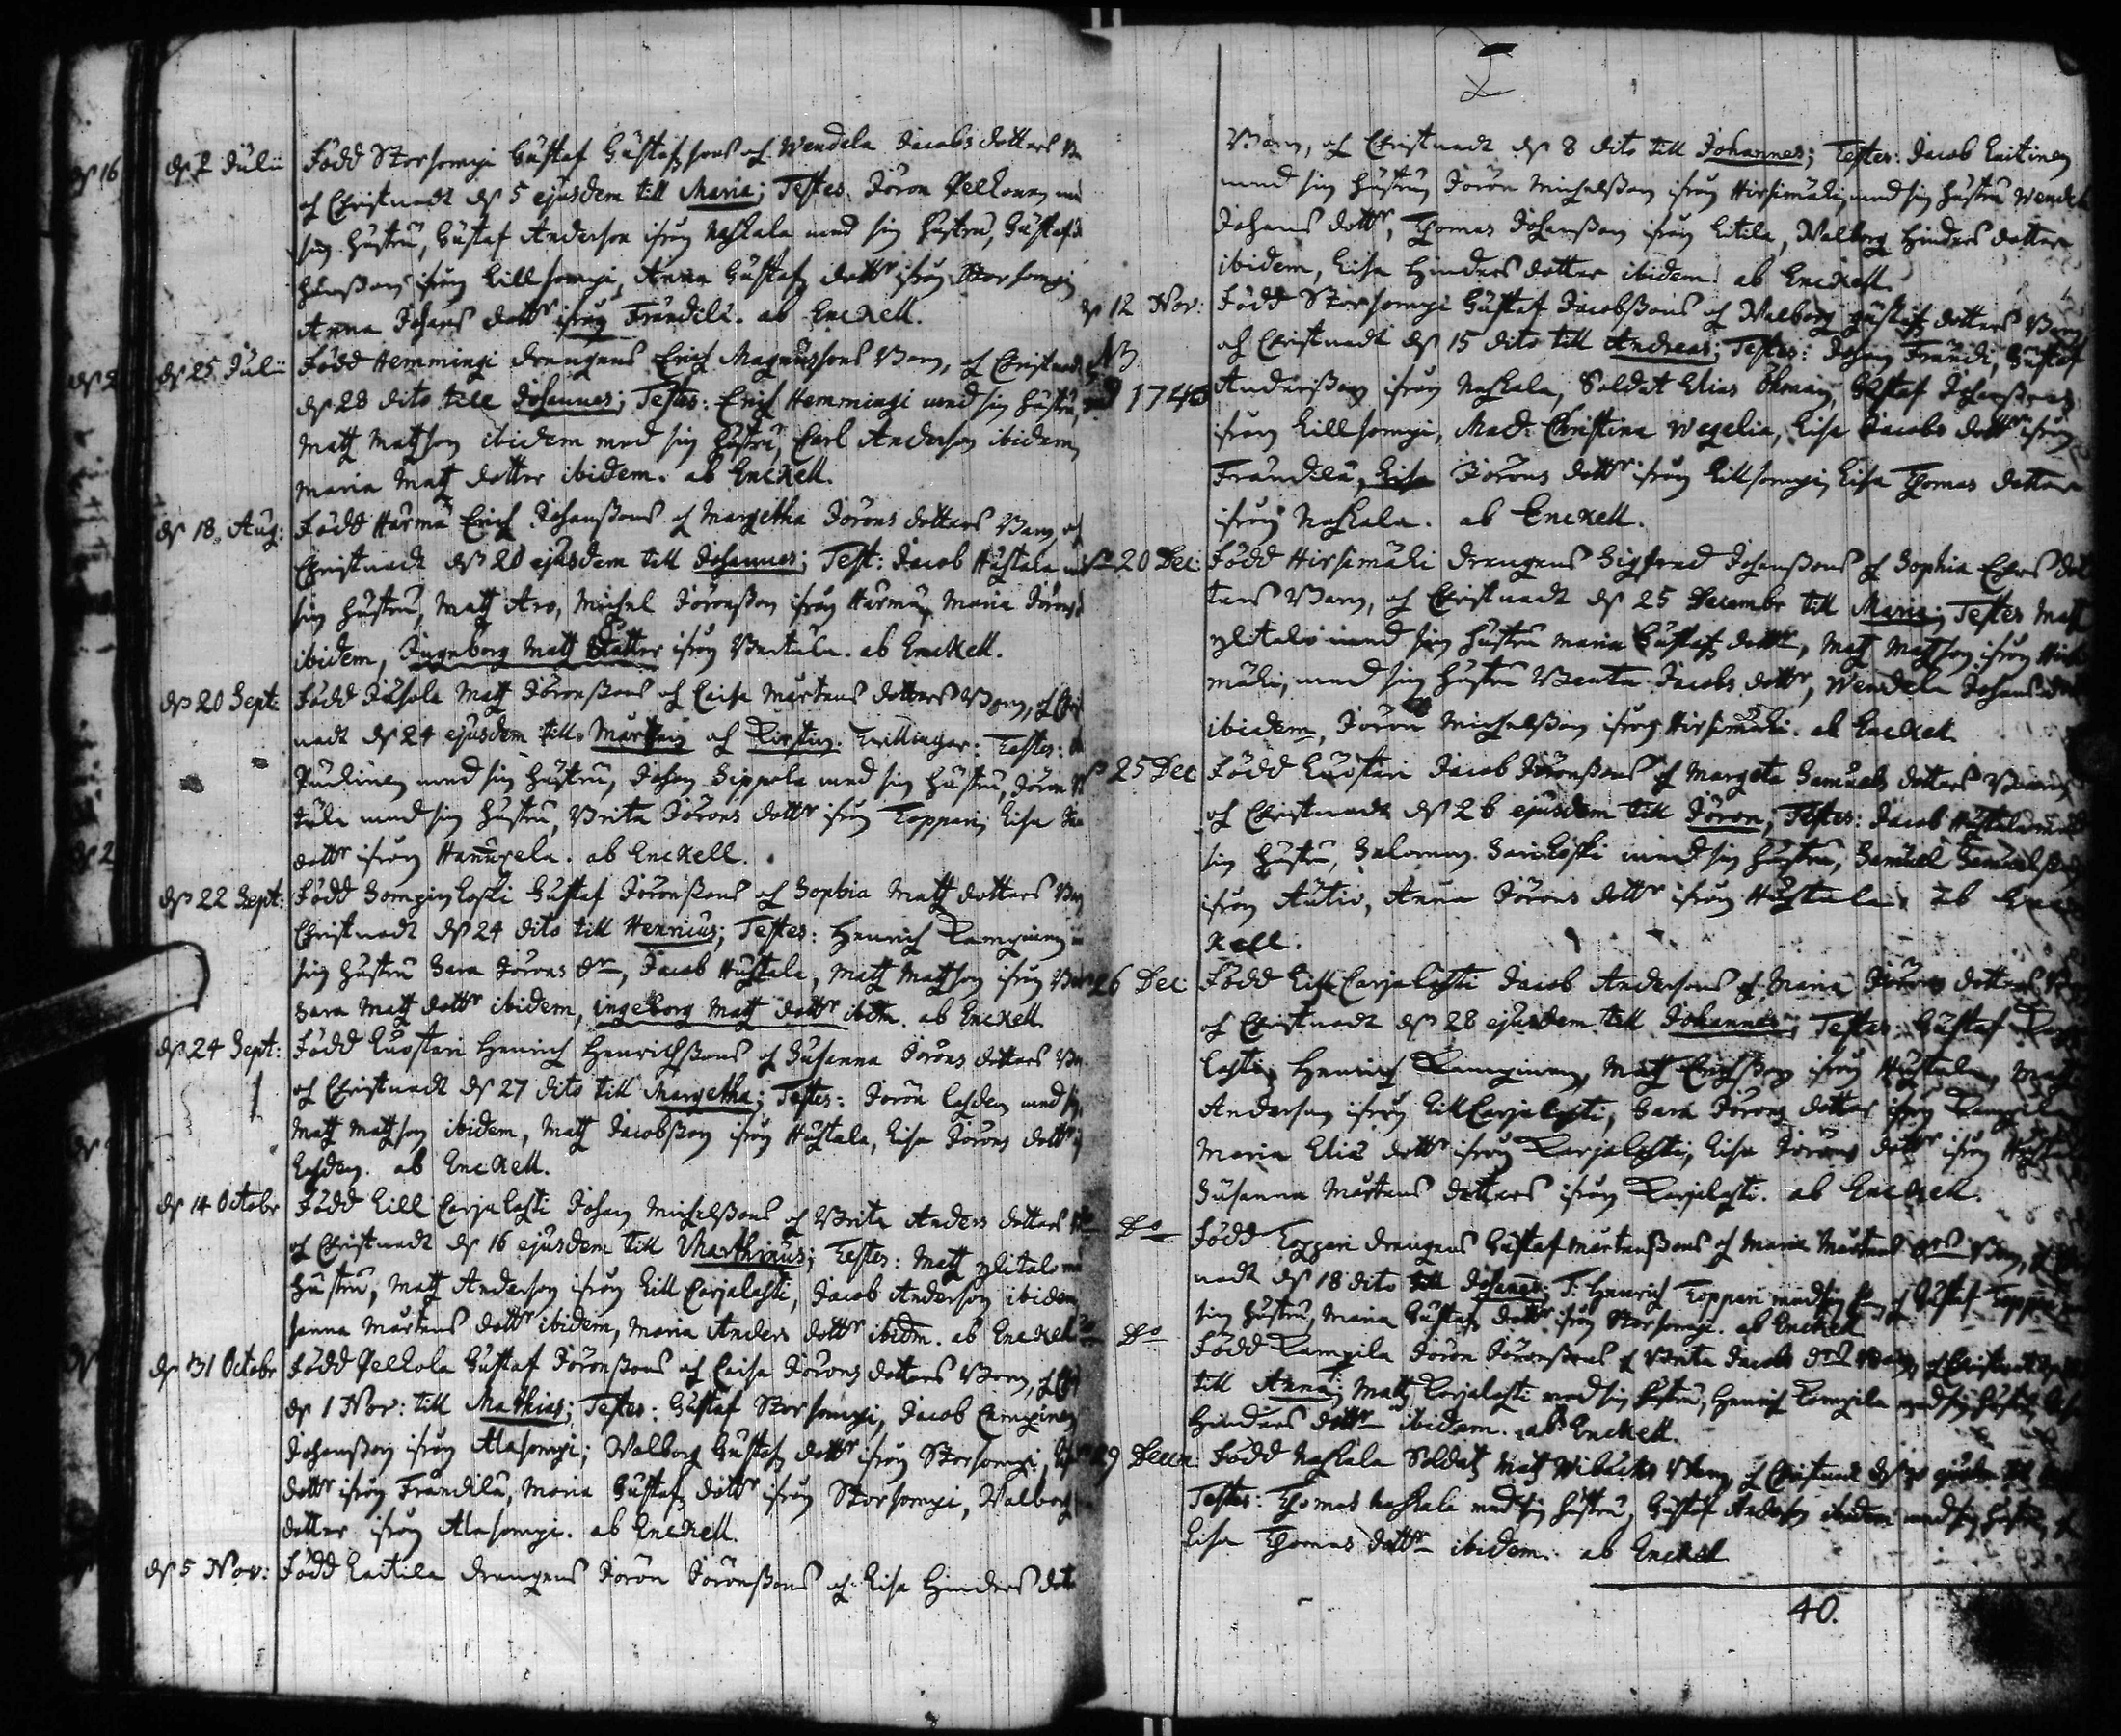 ds 2 Julii Född Storsompi Gustaf Gustafssons och Wendela Jacobs dotters
och Christnadt ds 5 ejusdem till Maria; Testes. Jöron Pelkonen
sin hustru, Gustaf Anderson ifrån Nahkala med sin hustru, Gustaf
ifrån Lillsompi, Anna Gustafs dottr ifrån Storsompi
Anna Johans dottr ifrån Frändilä. ab Enckell.
ds 25 Julii Född Hemmingi drengens Erich Magnussons Barn, och Christnadt
ds 28 dito till Johannes; Testes: Erich Hemmingi med sin hustru,
Matz Matzson ibidem med sin hustru, Carl Anderson ibidem,
Maria Matz dotter ibidem. ab Enckell.
ds 18. Aug: Född Härmä Erich Johanssons och Margetha Jörons dotters Barn och
Christnadt ds 20 ejusdem till Johannes; Test: Jacob Huhtala
sin hustru, Matz Aro, Michel Jöronsson ifrån Härmä, Maria Jörons
ibidem, Ingeborg Matz dotter ifrån Bertula. ab Enckell.
ds 20 Sept: Född Jusola Matz Jöronssons och Caisa Mårtens dotters Barn, och
nadt ds 24 ejusdem till Mårten och Kirstin. Twillingar: Testes:
Paulinen med sin hustru, Johan Sippola med sin hustru, Jöron
tula med sin hustru, Brita Jörons dottr ifrån Toppari, Lisa
dottr ifrån Hannuxela. ab Enckell.
ds 22 Sept: Född Sompinkoski Gustaf Jöronssons och Sophia Matz dotters
Christnadt ds 24 dito till Henricus; Testes: Henrich Kampinen
sin hustru Sara Jörons dr, Jacob Huhtala, Matz Matzson ifrån
Sara Matz dottr ibidem, Ingeborg Matz dottr ibdm. ab Enckell
ds 24 Sept: Född Luostari Henrich Henrichssons och Susanna Jörons dotters
och Christnadt ds 27 dito till Margetha; Testes: Jöron Lahden med
Matz Matzson ibidem, Matz Jacobsson ifrån Huhtala, Lisa Jörons dottr
Lahden. ab Enckell.
ds 14 Octobr Född Lill Carjalahti Johan Michelssons och Brita Anders dotters
och Christnadt ds 16 ejusdem till Marthinus; Testes: Matz Ylitalo
hustru, Matz Anderson ifrån Lill Carjalahti, Jacob Anderson ibidem
sanna Mårtens dottr ibidem, Maria Anders dottr ibidm. ab Enckell
ds 31 Octobr Född Pelkola Gustaf Jöronssons och Caisa Jörons dotters Barn, och
ds 1 Nov: till Mathias; Testes: Gustaf Storsompi, Jacob Campinen
Johansson ifrån Alasompi; Walborg Gustafs dottr ifrån Storsompi,
dottr ifrån Frändilä, Maria Gustafs dottr ifrån Storsompi, Walborg
dotter ifrån Alasompi. ab Enckell.
ds 5 Nov: Född Laitila drengens Jöron Jöronssons och Lisa Hinders
Barn, och Christnadt ds 8 dito till Johannes; Testes: Jacob Laitinen
med sin hustru, Jöron Michelsson ifrån Hirsimäki, med sin hustru Wendela
Johans dottr, Thomas Johansson ifrån Laitila, Walborg Hinders dotter
ibidem, Lisa Hinders dotter ibidem. ab Enckell.
ds 12 Nov: Född Storsompi Gustaf Jacobssons och Walborg Gustafs dotters Barn
och Christnadt ds 15 dito till Andreas; Testes: Johan Frändi, Gustaf
NB
1740 Andersson ifrån Nahkala, Soldat Elias Öhman, Gustaf Johansson
ifrån Lillsompi, Mad: Christina Wegelia, Lisa Jacobs dottr ifrån
Frändilä, Lisa Jörons dottr ifrån Lillsompi, Lisa Thomas dotter
ifrån Nahkala. ab Enckell.
20 Dec: Född Hirsimäki drengens Sigfred Johanssons och Sophia Ers
ters Barn, och Christnadt ds 25 Decembr till Maria; Testes Matz
Ylitalo med sin hustru Maria Gustafs dottr, Matz Matzson ifrån
mäki, med sin hustru Beata Jacobs dottr, Wendela Johans
ibidem, Jöron Michelsson ifrån Hirsimäki. ab Enckell.
25 Dec Född Luostari Jacob Jöronssons och Margeta Samuels dotters Barn
och Christnadt ds 26 ejusdem till Jöron; Testes: Jacob Huhtala
sin hustru, Salomon Sarikoski med sin hustru, Samuel Samuelsson
ifrån Autio, Anna Jörons dottr ifrån Huhtala. ab Enc
kell.
26 Dec Född Lill Carjalahti Jacob Andersons och Maria Jörons dotters
och Christnadt ds 28 ejusdem till Johannes; Testes: Gustaf
lahti, Henrich Kampinen, Matz Erichsson ifrån Huhtala, Matz
Anderson ifrån Lill Carjalahti, Sara Jörons dotter ifrån Kampila
Maria Elias dottr ifrån Karjalahti, Lisa Jörons dottr ifrån
Susanna Mårtens dotters ifrån Karjalahti. ab Enckell.
Do Född Toppari drengens Gustaf Mårtenssons och Maria Mårtens drs Barn,
nadt ds 18 dito till Johannes; T: Henrich Toppari med sin och Gustaf Toppari
sin hustru, Maria Gustafs dottr ifrån Storsompi. ab Enckell
Do Född Kampila Jöron Jöronssons och Brita Jacobs drs Barn, och Christnadt
till Anna; T: Matz Karjalahti med sin hustru, Henrich Kampila med sin hustru, Lisa
Hinders dottr ibidem. ab Enckell.
29 Decem. Född Nahkala Soldat Matz Wibäcks Barn, och Christnadt
Testes: Thomas Nahkala med sin hustru, Gustaf Anderson ibidem med sin hustru,
Lisa Thomas dottr ibidem. ab Enckell
40.